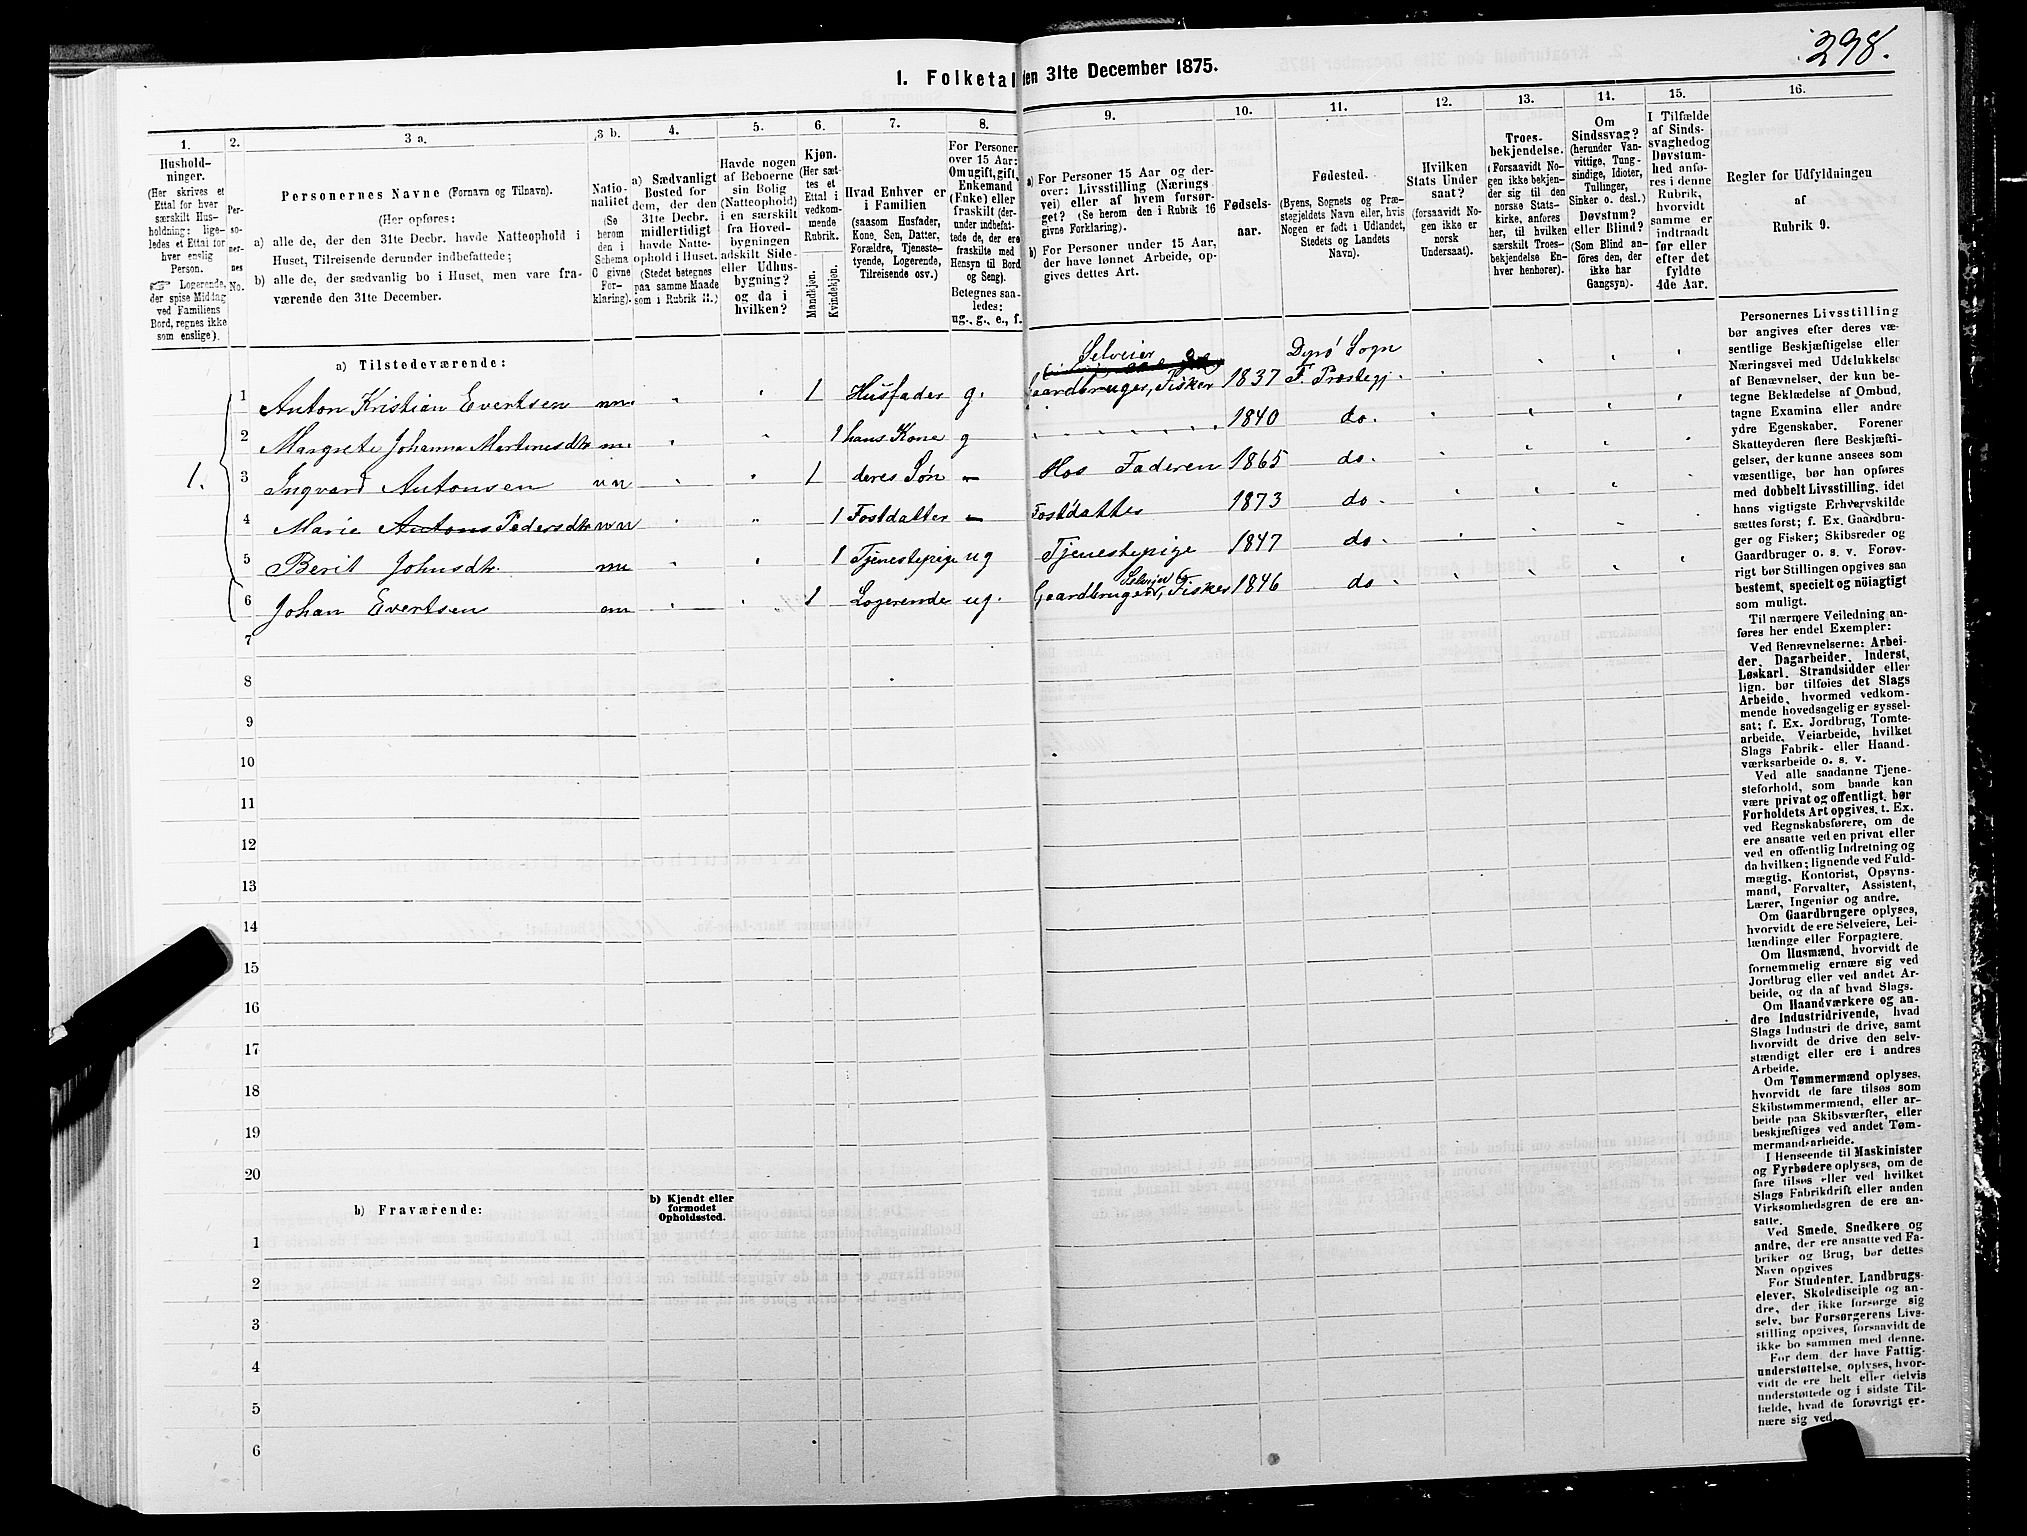 298.
I. Folketal den 31te December 1875.
1. 2. 3 a. 3 b. 4. 5. 6. 7. 8. 9. 10. 11. 12. 13. 14. 15. 16.
Hushold-
ninger.
(Her skrives et
Ettal for hver
særskilt Hus-
holdning; lige-
ledes et Ettal for
hver enslig
Person.
☞ Logerende,
der spise Middag
ved Familiens
Bord, regnes ikke
som enslige).
Per-
so-
ner-
nes
No.
Personernes Navne (Fornavn og Tilnavn).
(Her opføres:
a) alle de, der den 31te Decbr. havde Natteophold i
Huset, Tilreisende derunder indbefattede;
b) alle de, der sædvanlig bo i Huset, men vare fra-
værende den 31te December.
Natio-
nalitet
(Se
herom
den i
Schema
C givne
For-
klaring).
a) Sædvanligt
Bosted for
dem, der den
31te Decbr.
midlertidigt
havde Natte-
ophold i Huset.
(Stedet betegnes
paa samme Maade
som i Rubrik 11.)
Havde nogen
af Beboerne
sin Bolig
(Natteophold)
i en særskilt
fra Hoved-
bygningen
adskilt Side-
eller Udhus-
bygning?
og da i
hvilken?
Kjøn.
(Her sæt-
tes et
Ettal i
vedkom-
mende
Rubrik.
Mandkjøn.
Kvindekjøn.
Hvad Enhver er
i Familien
(saasom Husfader,
Kone, Søn, Datter,
Forældre, Tjeneste-
tyende, Logerende,
Tilreisende osv.)
For Personer
over 15 Aar:
Om ugift, gift,
Enkemand
(Enke) eller
fraskilt (der-
under indbefat-
tede de, der ere
fraskilte med
Hensyn til Bord
og Seng).
Betegnes saa-
ledes:
ug., g., e., f.
a) For Personer 15 Aar og der-
over: Livsstilling (Nærings-
vei) eller af hvem forsør-
get? (Se herom den i Rubrik 16
givne Forklaring).
b) For Personer under 15 Aar,
der have lønnet Arbeide, op-
gives dettes Art.
Fødsels-
aar.
Fødested.
(Byens, Sognets og Præ-
stegjeldets Navn eller, hvis
Nogen er født i Udlandet,
Stedets og Landets
Navn).
Hvilken
Stats Under
saat?
(forsaavidt No-
gen ikke er
norsk
Undersaat).
Troes-
bekjendelse.
(Forsaavidt No-
gen ikke bekjen-
der sig til den
norske Stats-
kirke, anføres
her, til hvilken
særskilt Troes-
bekjendelse En-
hver henhorer).
Om
Sindssvag?
(herunder Van-
vittige, Tung-
sindige, Idioter,
Tullinger,
Sinker o. desl.)
Døvstum?
eller Blind?
(Som Blind an-
føres den, der
ikke har
Gangsyn).
I Tilfælde
af Sinds-
svaghed og
Døvstum-
hed anfø-
res i denne
Rubrik,
hvorvidt
samme er
indtraadt
før eller
efter det
fyldte
4de Aar.
Regler for Udfyldningen
af
Rubrik 9.
a) Tilstedeværende:
1.
1 Anton Kristian Evertsen nn. 1 Husfader g. Selveier Gaardbruger, Fisker 1837 Dyrø Sogn F. Præstegj.
2 Margrete Johanna Martinesdtr 1 hans Kone g 1840 do.
3 Ingvard Antonsen 1 deres Søn 1865 Hos Faderen do.
4 Marie Antons Pedersdtr 1 Fostdatter Fostdatter 1873 do.
5 Berit Johnsdtr. 1 Tjenestepige ug Tjenestepige 1847 do.
6 Johan Evertsen 1 Logerende ug. Gaardbruger, Selvejer Fisker 1846 do
7
8
9
10
11
12
13
14
15
16
17
18
19
20
b) Fraværende:
b) Kjendt eller
formodet
Opholdssted.
1
2
3
4
5
6
Personernes Livsstilling
bør angives efter deres væ-
sentlige Beskjæftigelse eller
Næringsvei med Udelukkelse
af Benævnelser, der kun be-
tegne Beklædelse af Ombud,
tagne Examina eller andre
ydre Egenskaber. Forener
Skatteyderen flere Beskjæfti-
gelser, der kunne ansees som
væsentlige, bør han opføres
med dobbelt Livsstilling, idet
hans vigtigste Erhvervskilde
sættes først; f. Ex. Gaardbru-
ger og Fisker; Skibsreder og
Gaardbruger o. s. v. Forøv-
rigt bør Stillingen opgives saa
bestemt, specielt og nöiagtigt
som muligt.
Til nærmere Veiledning an-
føres her endel Exempler:
Ved Benævnelserne: Arbei-
der, Dagarbeider, Inderst,
Løskarl, Strandsidder eller
lign. bør tilføies det Slags
Arbeide, hvormed vedkom-
mende hovedsagelig er syssel-
sat; f. Ex. Jordbrug, Tomte-
arbeide, Veiarbeide, hvilket
Slags Fabrik- eller Haand-
værksarbeide o. s. v.
Ved alle saadanne Tjene-
steforhold, som baade kan
være privat og offentligt, bør
Forholdets Art opgives, t. Ex.
ved Regnskabsførere, om de
ere ansatte ved en privat eller
ved en offentlig Indretning og
da hvilken; lignende ved Fuld-
mægtig, Kontorist, Opsyns-
mand, Forvalter, Assistent,
Lærer, Ingeniør og andre.
Om Gaardbrugere oplyses,
hvorvidt de ere Selveiere, Lei-
lændinge eller Forpagtere.
Om Husmænd, hvorvidt de
fornemmelig ernære sig ved
Jordbrug eller ved andet Ar-
beide, og da af hvad Slags.
Om Haandværkere og an-
dre Industridrivende, hvad
Slags Industri de drive, samt
hvorvidt de drive den selv-
stændigt eller ere i andres
Arbeide.
Om Tømmermænd oplyses,
hvorvidt de fare tilsøs som
Skibstømmermænd, eller ar-
beide paa Skibsværfter, eller
beskjæftiges ved andet Tøm-
mermandsarbeide.
I Henseende til Maskinister
og Fyrbødere oplyses, om de
fare tilsøs eller ved hvilket
Slags Fabrikdrift eller anden
Virksomhedsgren de ere an-
satte.
Ved Smede, Snedkere og
andre, der ere ansatte ved Fa-
briker og Brug, bør dettes
Navn opgives
For Studenter, Landbrugs-
elever, Skoledisciple og an-
dre, der ikke forsørge sig
selv, bør Forsørgerens Livs-
stilling opgives, forsaavidt de
ikke bo sammen med denne.
For dem, der have Fattig-
understøttelse, oplyses, hvor-
vidt de ere helt eller delvis
understøttede og i sidste Til-
fælde, hvad de forøvrigt er-
nære sig ved.